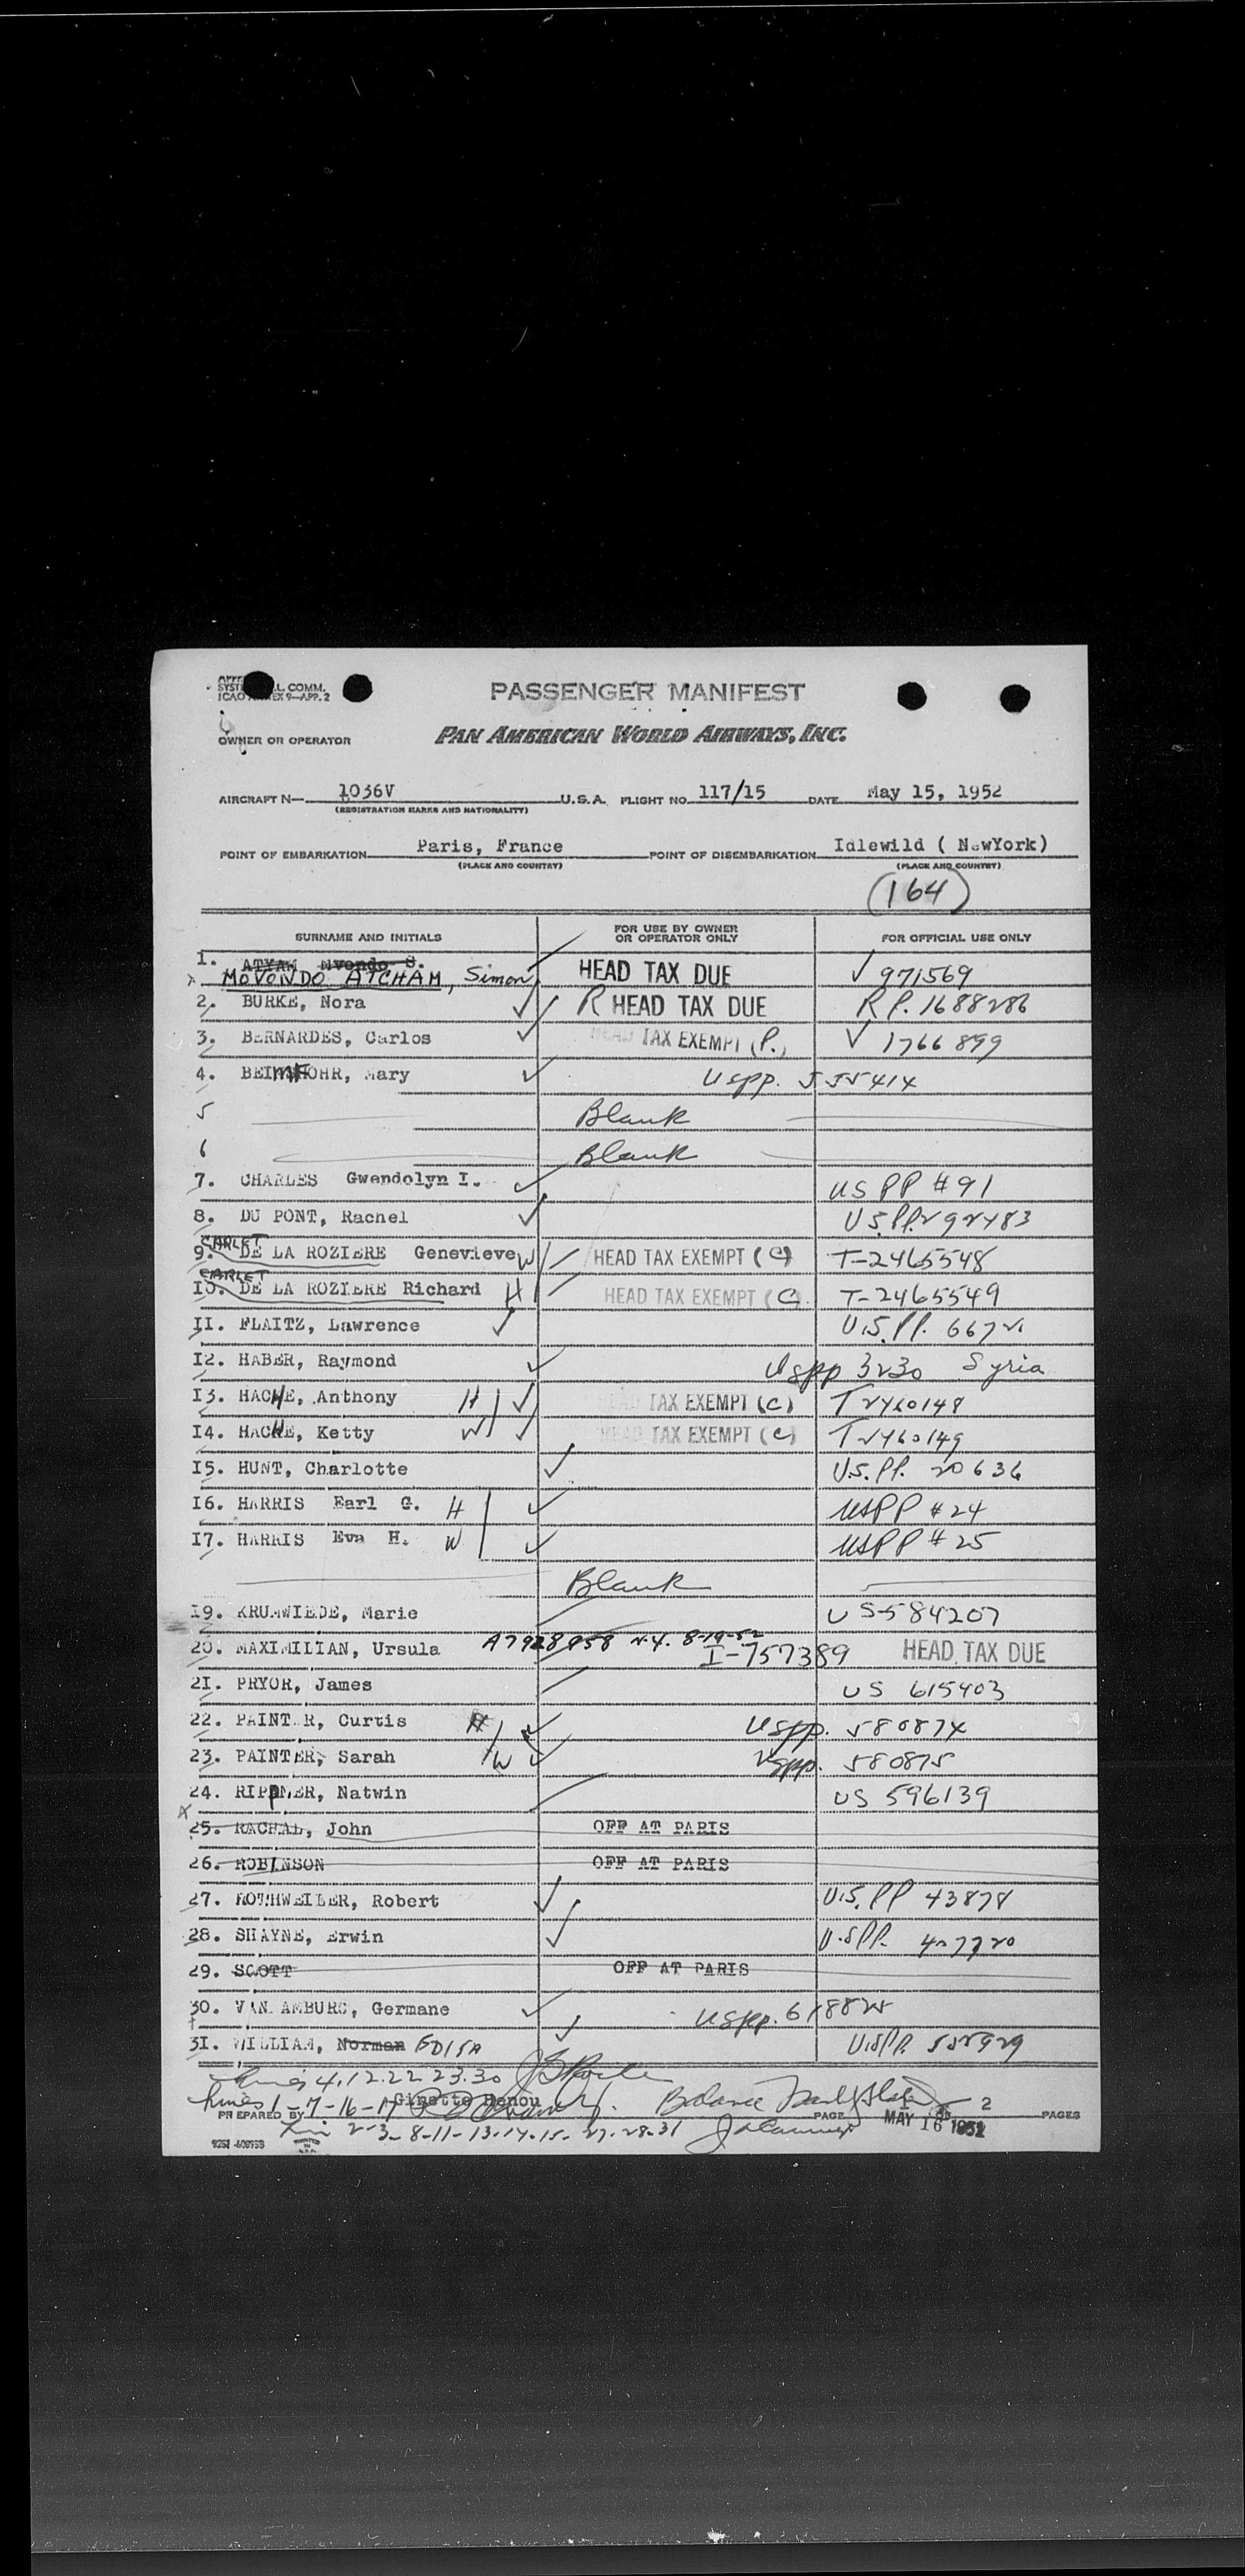 PASSENGER MANIFEST
L. COMM.
ICAO ANNEX 9—APP. 2
OWNER OR OPERATOR PAN AMERICAN WORLD AIRWAYS, INC.
AIRCRAFT N— 1036V U.S.A. FLIGHT NO. 117/15 DATE May 15, 1952
(REGISTRATION MARKS AND NATIONALITY)
POINT OF EMBARKATION Paris, France POINT OF DISEMBARKATION Idlewild ( NewYork)
(PLACE AND COUNTRY) (PLACE AND COUNTRY)
(164)
SURNAME AND INITIALS FOR USE BY OWNER OR OPERATOR ONLY FOR OFFICIAL USE ONLY
1. ATYAM Nvondo S.
MOVONDO ATCHAM, Simon HEAD TAX DUE V 971569
2. BURKE, Nora R HEAD TAX DUE R P. 1688286
3. BERNARDES, Carlos HEAD TAX EXEMPT (P.) V 1766899
4. BEIMFOHR, Mary USPP. 555414
5 Blank
6 Blank
7. CHARLES Gwendolyn I. US PP #91
8. DU PONT, Rachel U.S.PP. 292483
9. CARLET DE LA ROZIERE Genevieve W HEAD TAX EXEMPT (C) T-2465548
10. CARLET DE LA ROZIERE Richard H HEAD TAX EXEMPT (C) T-2465549
11. FLAITZ, Lawrence U.S. PP. 6672
12. HABER, Raymond USPP 3230 Syria
13. HACHE, Anthony H HEAD TAX EXEMPT (C) T 2460148
14. HACHE, Ketty W HEAD TAX EXEMPT (C) T 2460149
15. HUNT, Charlotte U.S. PP. 20636
16. HARRIS Earl G. H USPP #24
17. HARRIS Eva H. W USPP #25
Blank
19. KRUMWIEDE, Marie US-584207
20. MAXIMILIAN, Ursula A7928958 N.Y. 8-19-52 I-757389 HEAD TAX DUE
21. PRYOR, James US 615403
22. PAINTER, Curtis H USPP. 580874
23. PAINTER, Sarah W USPP. 580875
24. RIPPNER, Natwin US 596139
25. RACHAL, John OFF AT PARIS
26. ROBINSON OFF AT PARIS
27. ROTHWEILER, Robert U.S. PP 43878
28. SHAYNE, Erwin U.S PP. 407720
29. SCOTT OFF AT PARIS
30. VAN AMBURG, Germane USPP. 618825
31. WILLIAM, Norman EDISA U.S.PP. 552929
Lines 4.12.22 23.30
Lines 1-7-16-17 Ginette Benou Balance
PREPARED BY PAGE 1 2 PAGES
MAY 16 1952
Lin 2-3-8-11-13-14-15-27-28-31